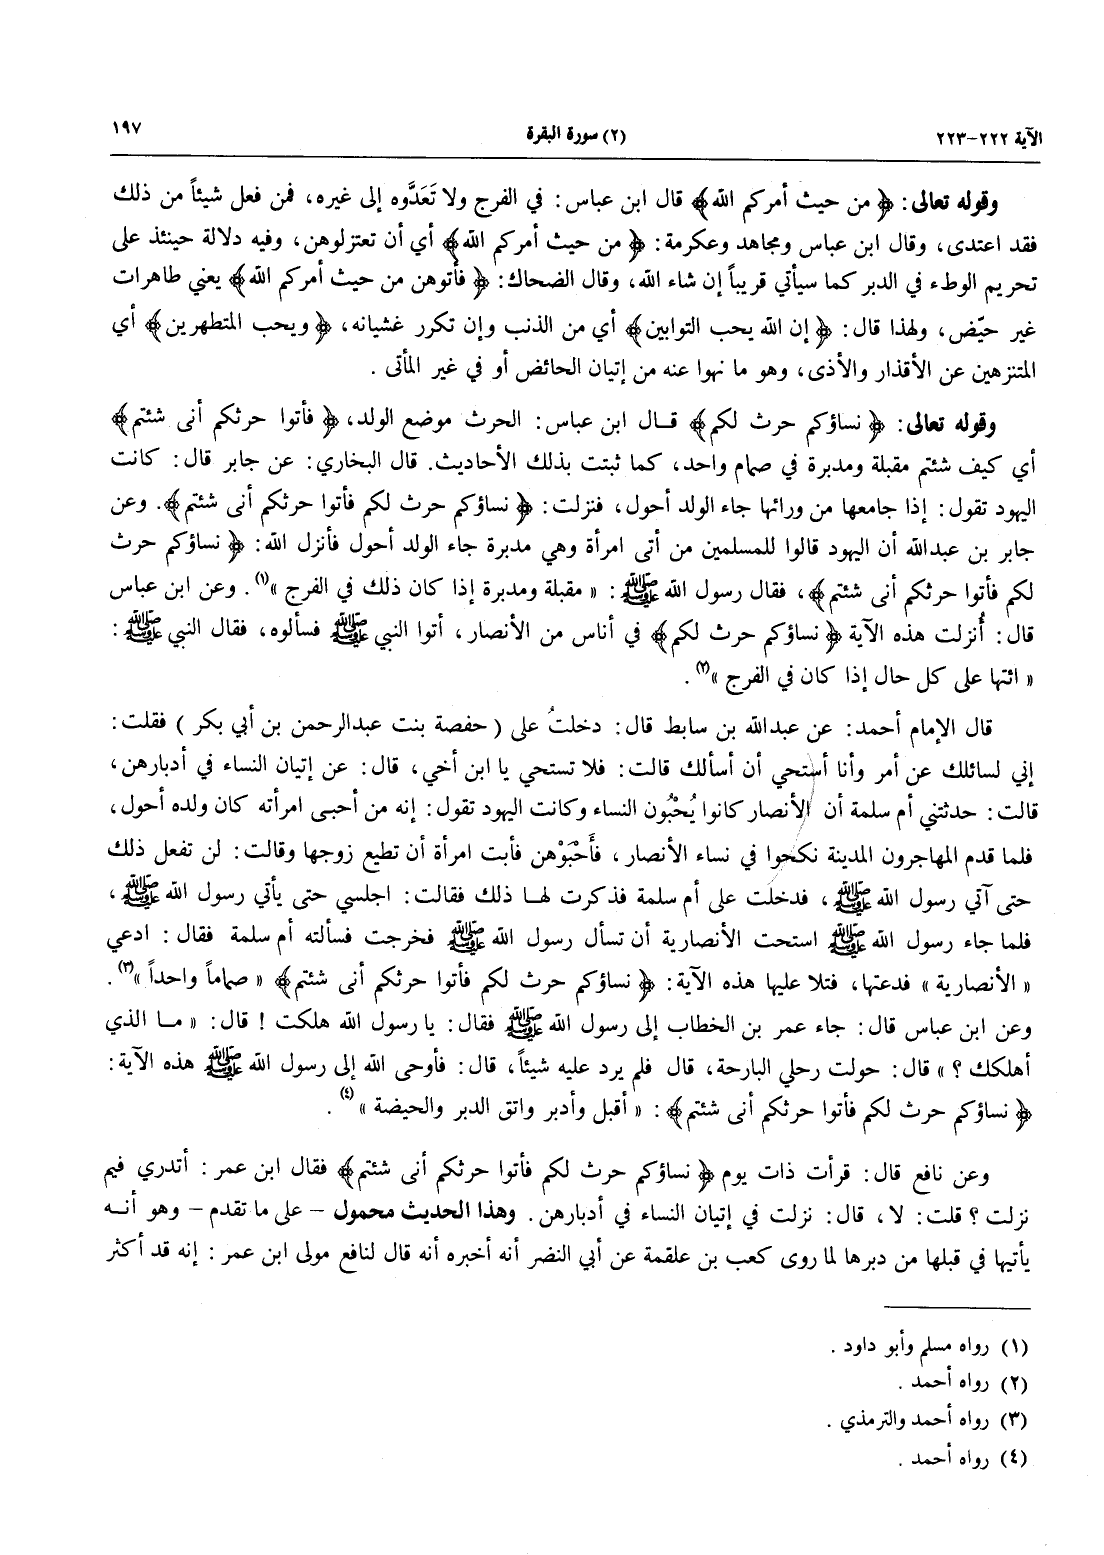 الآية ٢٢٢-٢٢٣ (٢) سورة البقرة ١٩٧
وقوله تعالى: ﴿من حيث أمركم الله﴾ قال ابن عباس: في الفرج ولا تَعَدَّوه إلى غيره، فمن فعل شيئاً من ذلك
فقد اعتدى، وقال ابن عباس ومجاهد وعكرمة: ﴿من حيث أمركم الله﴾ أي أن تعتزلوهن، وفيه دلالة حينئذ على
تحريم الوطء في الدبر كما سيأتي قريباً إن شاء الله، وقال الضحاك: ﴿فأتوهن من حيث أمركم الله﴾ يعني طاهرات
غير حيّض، ولهذا قال: ﴿إن الله يحب التوابين﴾ أي من الذنب وإن تكرر غشيانه، ﴿ويحب المتطهرين﴾ أي
المتنزهين عن الأقذار والأذى، وهو ما نهوا عنه من إتيان الحائض أو في غير المأتى .
وقوله تعالى: ﴿نساؤكم حرث لكم﴾ قال ابن عباس: الحرث موضع الولد، ﴿فأتوا حرثكم أنى شئتم﴾
أي كيف شئتم مقبلة ومدبرة في صمام واحد، كما ثبتت بذلك الأحاديث. قال البخاري: عن جابر قال: كانت
اليهود تقول: إذا جامعها من ورائها جاء الولد أحول، فنزلت: ﴿نساؤكم حرث لكم فأتوا حرثكم أنى شئتم﴾. وعن
جابر بن عبدالله أن اليهود قالوا للمسلمين من أتى امرأة وهي مدبرة جاء الولد أحول فأنزل الله: ﴿نساؤكم حرث
لكم فأتوا حرثكم أنى شئتم﴾، فقال رسول الله ﷺ: « مقبلة ومدبرة إذا كان ذلك في الفرج »(١). وعن ابن عباس
قال: أُنزلت هذه الآية ﴿نساؤكم حرث لكم﴾ في أناس من الأنصار، أتوا النبي ﷺ فسألوه، فقال النبي ﷺ:
« ائتها على كل حال إذا كان في الفرج »(٢).
قال الإمام أحمد: عن عبدالله بن سابط قال: دخلتُ على ( حفصة بنت عبدالرحمن بن أبي بكر ) فقلت:
إني لسائلك عن أمر وأنا أستحي أن أسألك قالت: فلا تستحي يا ابن أخي، قال: عن إتيان النساء في أدبارهن،
قالت: حدثتني أم سلمة أن الأنصار كانوا يُحْبُون النساء وكانت اليهود تقول: إنه من أحبى امرأته كان ولده أحول،
فلما قدم المهاجرون المدينة نكحوا في نساء الأنصار، فأَحْبَوْهن فأبت امرأة أن تطيع زوجها وقالت: لن تفعل ذلك
حتى آتي رسول الله ﷺ، فدخلت على أم سلمة فذكرت لها ذلك فقالت: اجلسي حتى يأتي رسول الله ﷺ،
فلما جاء رسول الله ﷺ استحت الأنصارية أن تسأل رسول الله ﷺ فخرجت فسألته أم سلمة فقال: ادعي
« الأنصارية » فدعتها، فتلا عليها هذه الآية: ﴿نساؤكم حرث لكم فأتوا حرثكم أنى شئتم﴾ « صماماً واحداً »(٣).
وعن ابن عباس قال: جاء عمر بن الخطاب إلى رسول الله ﷺ فقال: يا رسول الله هلكت ! قال: « ما الذي
أهلكك ؟ » قال: حولت رحلي البارحة، قال فلم يرد عليه شيئاً، قال: فأوحى الله إلى رسول الله ﷺ هذه الآية:
﴿نساؤكم حرث لكم فأتوا حرثكم أنى شئتم﴾: « أقبل وأدبر واتق الدبر والحيضة »(٤).
وعن نافع قال: قرأت ذات يوم ﴿نساؤكم حرث لكم فأتوا حرثكم أنى شئتم﴾ فقال ابن عمر: أتدري فيم
نزلت ؟ قلت: لا، قال: نزلت في إتيان النساء في أدبارهن. وهذا الحديث محمول - على ما تقدم - وهو أنه
يأتيها في قبلها من دبرها لما روى كعب بن علقمة عن أبي النضر أنه أخبره أنه قال لنافع مولى ابن عمر: إنه قد أكثر
(١) رواه مسلم وأبو داود .
(٢) رواه أحمد .
(٣) رواه أحمد والترمذي .
(٤) رواه أحمد .